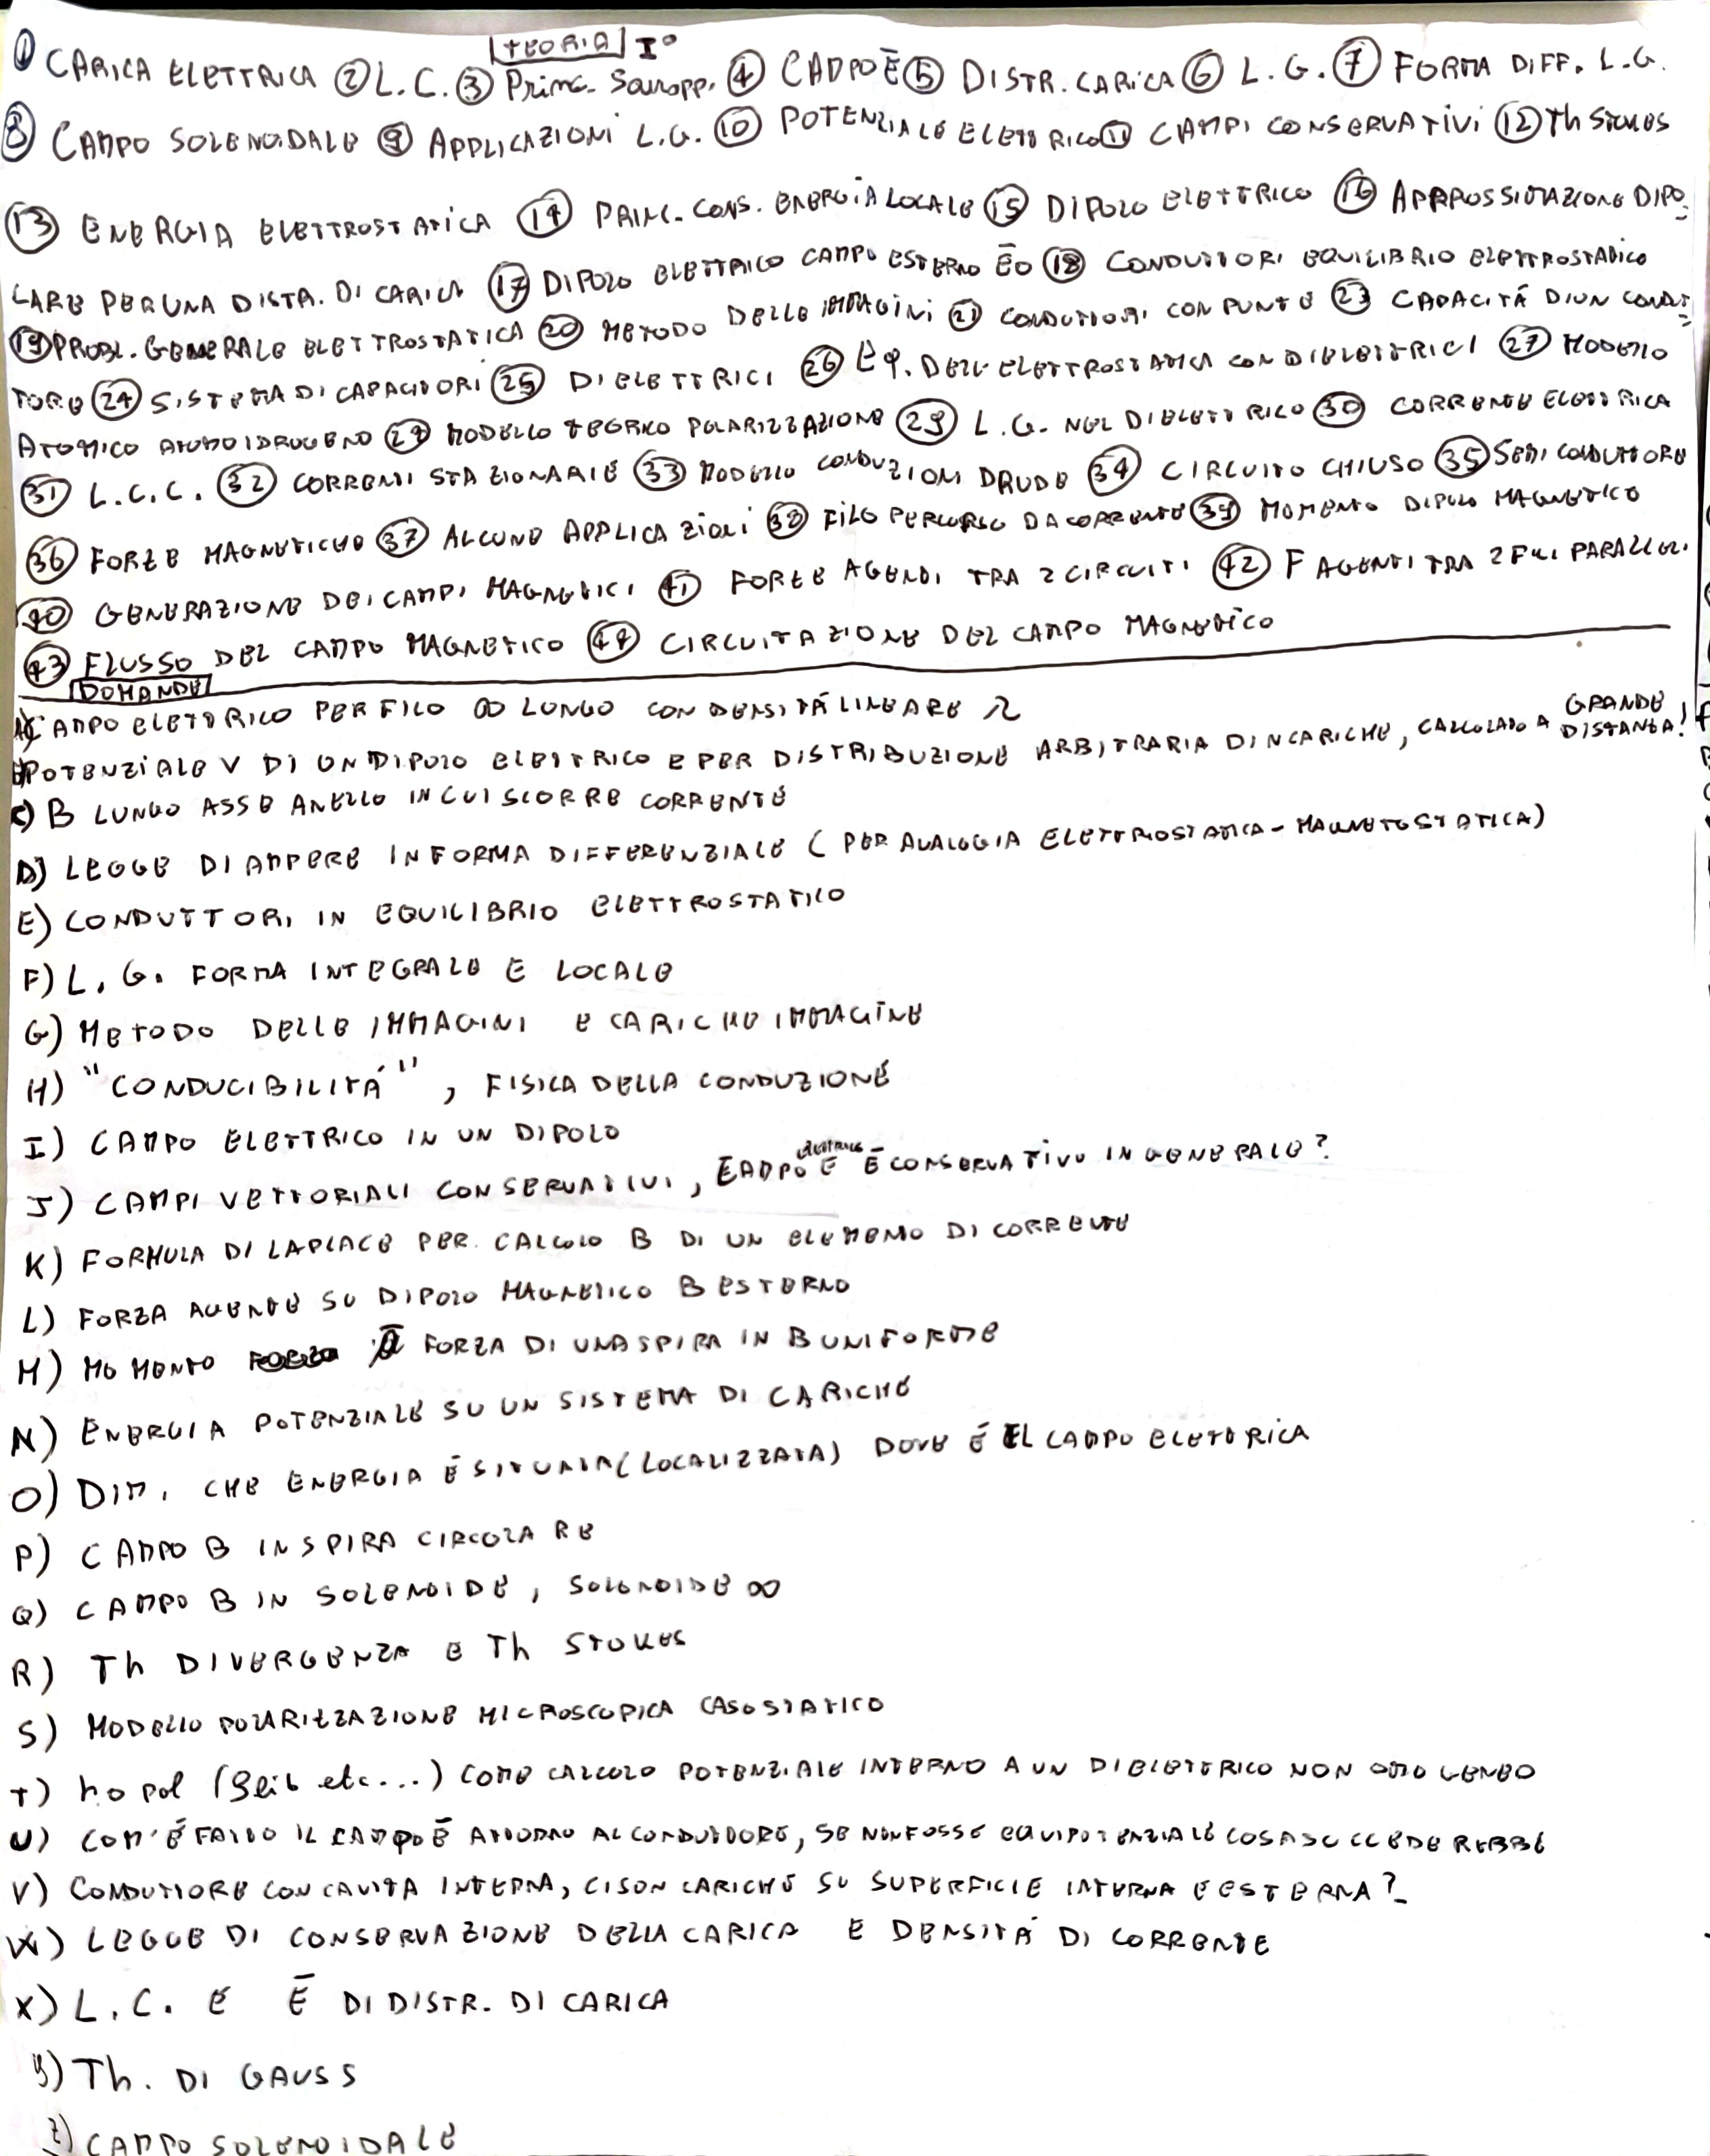 TEORIA I°
① CARICA ELETTRICA ② L.C. ③ Princ. Sovropp. ④ CAMPO Ē ⑤ DISTR. CARICA ⑥ L.G. ⑦ FORMA DIFF. L.G.
⑧ CAMPO SOLENOIDALE ⑨ APPLICAZIONI L.G. ⑩ POTENZIALE ELETTRICO ⑪ CAMPI CONSERVATIVI ⑫ Th STOKES
⑬ ENERGIA ELETTROSTATICA ⑭ PRINC. CONS. ENERGIA LOCALE ⑮ DIPOLO ELETTRICO ⑯ APPROSSIMAZIONE DIPO=
LARE PER UNA DISTR. DI CARICA ⑰ DIPOLO ELETTRICO CAMPO ESTERNO Ē0 ⑱ CONDUTTORI EQUILIBRIO ELETTROSTATICO
⑲ PROBL. GENERALE ELETTROSTATICA ⑳ METODO DELLE IMMAGINI ㉑ CONDUTTORI CON PUNTE ㉓ CAPACITÁ DI UN CONDUT=
TORE ㉔ SISTEMA DI CAPACITORI ㉕ DIELETTRICI ㉖ Eq. DELL'ELETTROSTATICA CON DIELETTRICI ㉗ MODELLO
ATOMICO ATOMO IDROGENO MODELLO TEORICO POLARIZZAZIONE ㉙ L.G. NEL DIELETTRICO ㉚ CORRENTE ELETTRICA
㉛ L.C.C. ㉜ CORRENTI STAZIONARIE ㉝ MODELLO CONDUZIONI DRUDE ㉞ CIRCUITO CHIUSO ㉟ SEMICONDUTTORE
㊱ FORZE MAGNETICHE ㊲ ALCUNE APPLICAZIONI ㊳ FILO PERCORSO DA CORRENTE ㊴ MOMENTO DIPOLO MAGNETICO
㊵ GENERAZIONE DEI CAMPI MAGNETICI ㊶ FORZE AGENTI TRA 2 CIRCUITI ㊷ F AGENTI TRA 2 FILI PARALLELI
㊸ FLUSSO DEL CAMPO MAGNETICO ㊹ CIRCUITAZIONE DEL CAMPO MAGNETICO
DOMANDE
A) CAMPO ELETTRICO PER FILO ∞ LUNGO CON DENSITÁ LINEARE λ
B) POTENZIALE V DI UN DIPOLO ELETTRICO E PER DISTRIBUZIONE ARBITRARIA DI N CARICHE, CALCOLATO A GRANDE DISTANZA!
C) B LUNGO ASSE ANELLO IN CUI SCORRE CORRENTE
D) LEGGE DI AMPERE IN FORMA DIFFERENZIALE (PER ANALOGIA ELETTROSTATICA - MAGNETOSTATICA)
E) CONDUTTORI IN EQUILIBRIO ELETTROSTATICO
F) L.G. FORMA INTEGRALE E LOCALE
G) METODO DELLE IMMAGINI E CARICHE IMMAGINE
H) "CONDUCIBILITÁ", FISICA DELLA CONDUZIONE
I) CAMPO ELETTRICO IN UN DIPOLO
J) CAMPI VETTORIALI CONSERVATIVI, CAMPO Ē elettrico È CONSERVATIVO IN GENERALE?
K) FORMULA DI LAPLACE PER CALCOLO B DI UN ELEMENTO DI CORRENTE
L) FORZA AGENTE SU DIPOLO MAGNETICO B ESTERNO
M) MOMENTO FORZA DI UNA SPIRA IN B UNIFORME
N) ENERGIA POTENZIALE SU UN SISTEMA DI CARICHE
O) DIM. CHE ENERGIA É SITUATA (LOCALIZZATA) DOVE É IL CAMPO ELETTRICA
P) CAMPO B IN SPIRA CIRCOLARE
Q) CAMPO B IN SOLENOIDE, SOLENOIDE ∞
R) Th DIVERGENZA E Th STOKES
S) MODELLO POLARIZZAZIONE MICROSCOPICA CASO STATICO
T) ho pol (Slib etc...) COME CALCOLO POTENZIALE INTERNO A UN DIELETTRICO NON OMOGENEO
U) COM'É FATTO IL CAMPO Ē ATTORNO AL CONDUTTORE, SE NON FOSSE EQUIPOTENZIALE COSA SUCCEDEREBBE
V) CONDUTTORE CON CAVITA INTERNA, CI SON CARICHE SU SUPERFICIE INTERNA E ESTERNA?
W) LEGGE DI CONSERVAZIONE DELLA CARICA E DENSITÁ DI CORRENTE
X) L.C. E Ē DI DISTR. DI CARICA
Y) Th. DI GAUSS
Z) CAMPO SOLENOIDALE